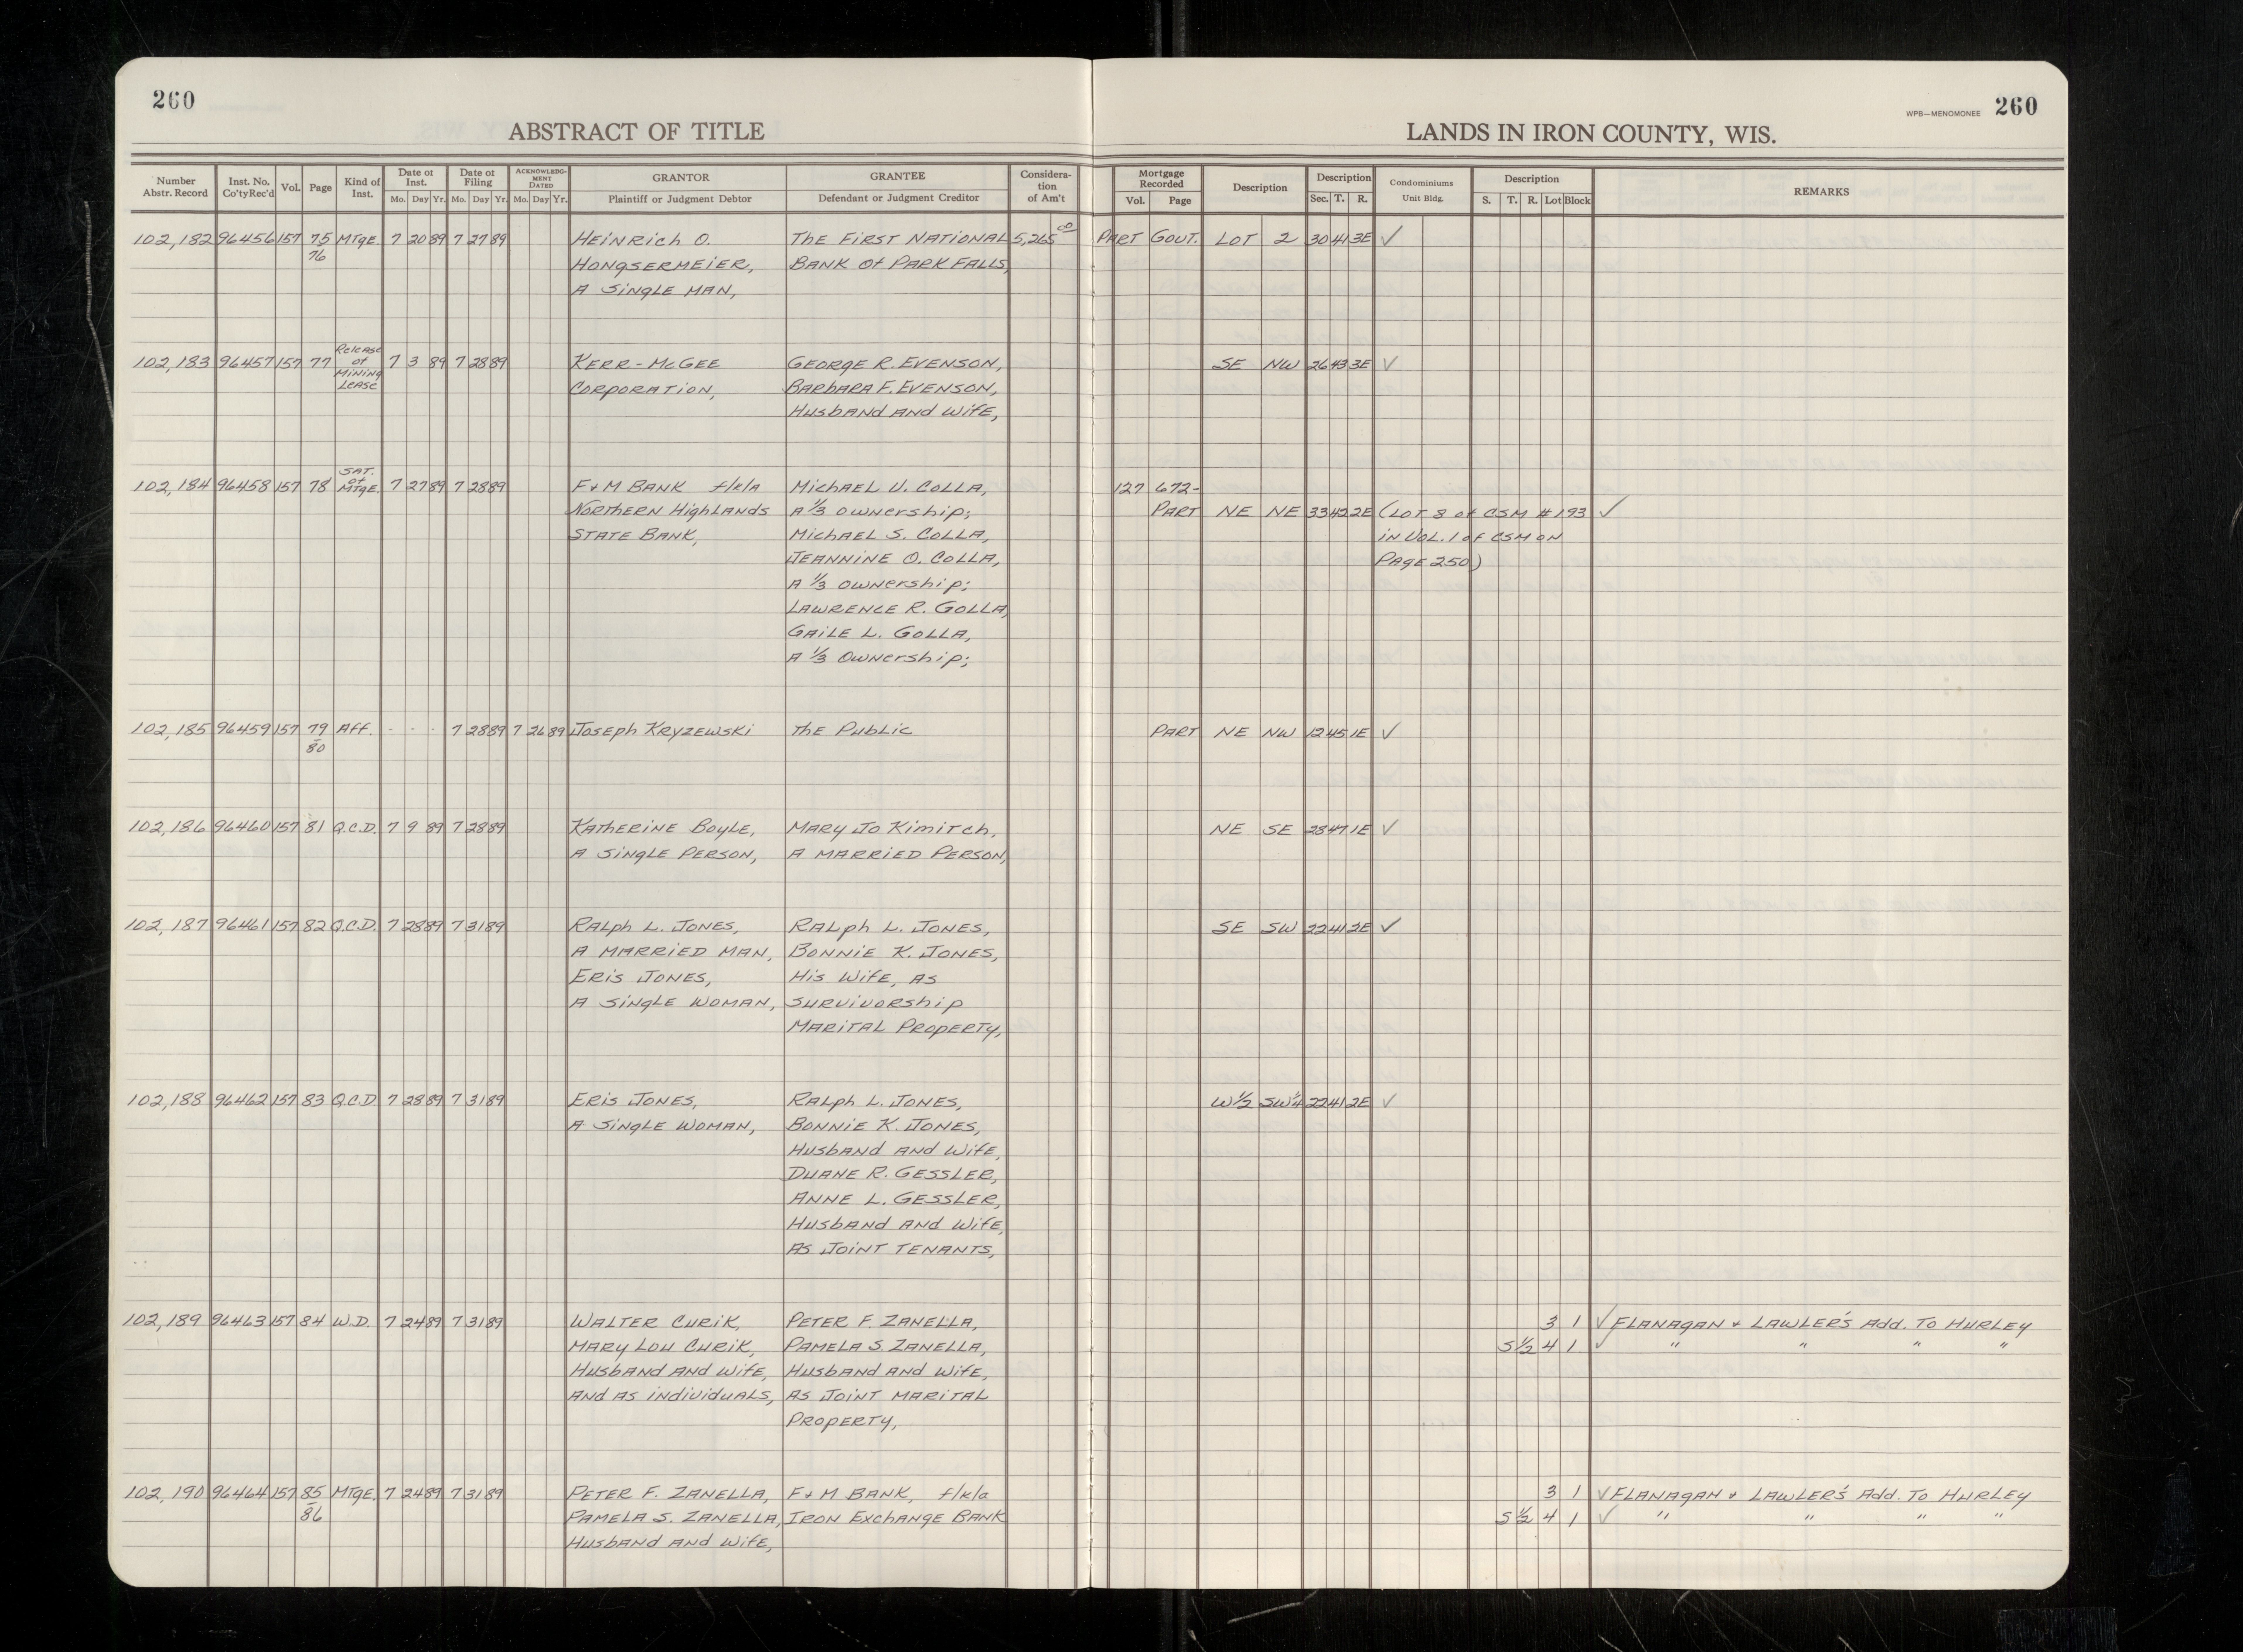 260
ABSTRACT OF TITLE
LANDS IN IRON COUNTY, WIS.
WPB—MENOMONEE 260
Number Abstr. Record
Inst. No. Co'ty Rec'd
Vol.
Page
Kind of Inst.
Date of Inst. Mo. Day Yr.
Date of Filing Mo. Day Yr.
ACKNOWLEDG-MENT DATED Mo. Day Yr.
GRANTOR Plaintiff or Judgment Debtor
GRANTEE Defendant or Judgment Creditor
Considera-tion of Am't
Mortgage Recorded Vol. Page
Description
Description Sec. T. R.
Condominiums Unit Bldg.
Description S. T. R. Lot Block
REMARKS
102,182 96456 157 75 MTgE. 7 20 89 7 27 89 HEiNRich O. The FiRST NATiONAL 5,265 00 PART GOVT. LOT 2 30 41 3E ✓
76 HONGSERMEiER, BANK Of PARK FALLS,
A SiNgLE MAN,
102,183 96457 157 77 RElEASE of MiNiNg LEASE 7 3 89 7 28 89 KERR-McGEE GEORgE R. EVENSON, SE NW 26 43 3E ✓
CORPORATiON, BARbARA F. EVENSON,
HusbANd ANd WifE,
102,184 96458 157 78 SAT. of MTgE. 7 27 89 7 28 89 F+M BANK f/k/a MichAEL V. COLLA, 127 672-
NORThERN HighLANdS A 1/3 OwNERship; PART NE NE 33 42 2E (LOT 8 of CSM #193 ✓
STATE BANK, MichAEL S. COLLA, iN VOL. 1 OF CSM ON
JEANNiNE O. COLLA, PAgE 250)
A 1/3 OwNERship;
LAWRENCE R. GOLLA,
GAiLE L. GOLLA,
A 1/3 OwNERship;
102,185 96459 157 79 Aff. - - - 7 28 89 7 26 89 JOSEph KRYZEWSKi ThE PubLic PART NE NW 12 45 1E ✓
80
102,186 96460 157 81 Q.C.D. 7 9 89 7 28 89 KAThERiNE BOYLE, MARY JO KimiTch, NE SE 28 47 1E ✓
A SiNgLE PERSON, A MARRiED PERSON,
102,187 96461 157 82 Q.C.D. 7 28 89 7 31 89 RALph L. JONES, RALph L. JONES, SE SW 22 41 2E ✓
A MARRiED MAN, BONNiE K. JONES,
ERiS JONES, His WifE, AS
A SiNgLE WOMAN, SURViVORship
MARiTAL PROpERTY,
102,188 96462 157 83 Q.C.D. 7 28 89 7 31 89 ERiS JONES, RALph L. JONES, W1/2 SW1/4 22 41 2E ✓
A SiNgLE WOMAN, BONNiE K. JONES,
HusbANd ANd WifE,
DUANE R. GESSLER,
ANNE L. GESSLER,
HusbANd ANd WifE,
AS JOiNT TENANTS,
102,189 96463 157 84 W.D. 7 24 89 7 31 89 WALTER CURiK, PETER F. ZANELLA, 3 1 ✓ FLANAgAN + LAWLER'S Add. To HURLEY
MARY LOU CURiK, PAMELA S. ZANELLA, S 1/2 4 1 ✓ " " " "
HusbANd ANd WifE, HusbANd ANd WifE,
ANd AS iNdiViduALS, AS JOiNT MARiTAL
PROpERTY,
102,190 96464 157 85 MTgE. 7 24 89 7 31 89 PETER F. ZANELLA, F+M BANK, f/k/a 3 1 ✓ FLANAgAN + LAWLER'S Add. To HURLEY
86 PAMELA S. ZANELLA, IRON ExchANgE BANK S 1/2 4 1 ✓ " " " "
HusbANd ANd WifE,